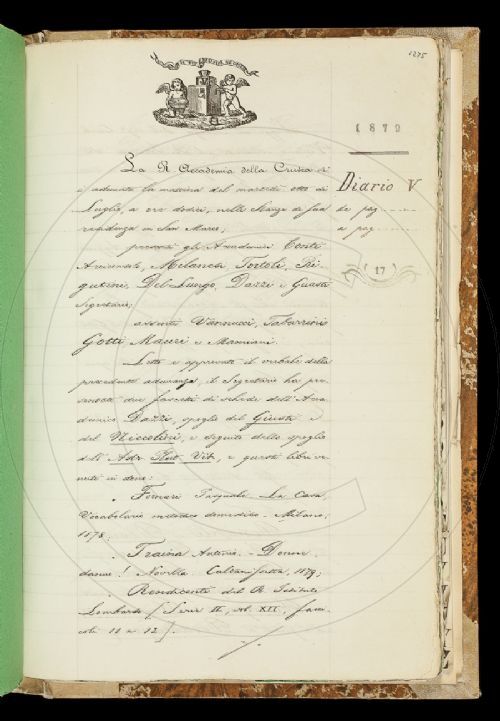 1275
1879
La R. Accademia della Crusca si
è adunata la mattina del martedì otto di
Luglio, a ore dodici, nelle Stanze di sua
residenza in San Marco;
presenti gli Accademici Conti
Arciconsolo, Milanesi, Tortoli, Ri-
gutini, Del-Lungo, Dazzi e Guasti
Segretario;
assenti Vannucci, Tabarrini
Gotti Mauri e Mamiani.
Letto e approvato il verbale della
precedente adunanza, il Segretario ha pre-
sentato due fascetti di schede dell'Acca-
demico Dazzi, spoglio del Giusti e
del Niccolini, e seguito dello spoglio
d. Adr. Vit., e questi libri ve-
nuti in dono:
. Fornari Pasquale. La Casa,
Vocabolario metodico domestico. Milano,
1878;
. Traina Antonio. Donne
donne! Novella. Caltanissetta, 1879;
. Rendiconti del R. Istituto
Lombardo [Serie II, vol. XII, fasci-
coli 11 a 12].
Diario V
da pag.
a pag.
(17)